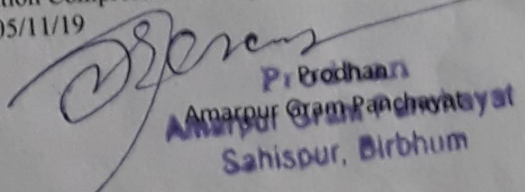 05/11/19
Prodhan
Amarpur Gram Panchayat
Sahispur, Birbhum